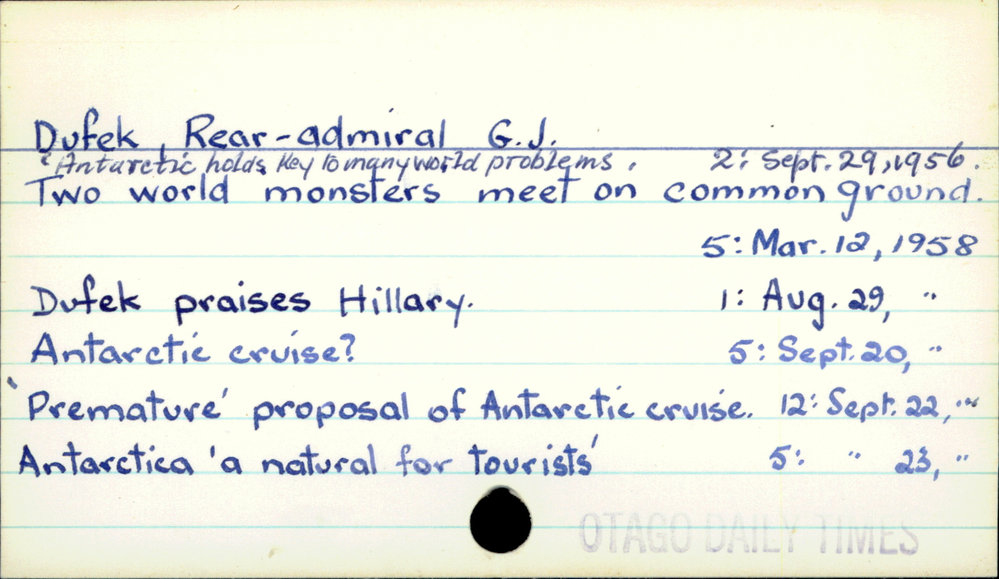 Dufek, Rear-admiral G.J.
'Antarctic holds Key to many world problems. 2: Sept. 29, 1956.
Two world monsters meet on common ground.
5: Mar. 12, 1958
Dufek praises Hillary. 1: Aug. 29, "
Antarctic cruise? 5: Sept. 20, "
'Premature' proposal of Antarctic cruise. 12: Sept. 22, "
Antarctica 'a natural for tourists' 5: " 23, "
OTAGO DAILY TIMES